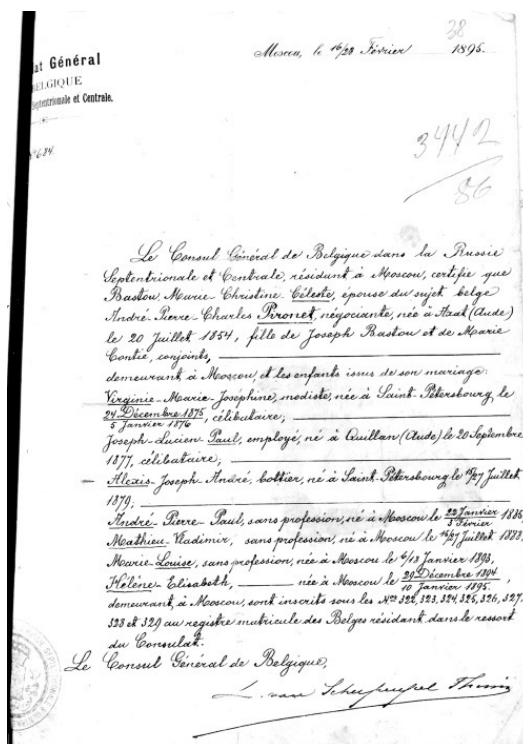 38
Moscou, le 16/28 Février 1895.
at Général
BELGIQUE
Septentrionale et Centrale.
N° 684
3442
86
Le Consul Général de Belgique dans la Russie
Septentrionale et Centrale, résidant à Moscou, certifie que
Bastou, Marie-Christine-Céleste, épouse du sujet belge
André-Pierre-Charles Pironet, négociante, née à Axat (Aude)
le 20 Juillet 1854, fille de Joseph Bastou et de Marie
Contié, conjoints,
demeurant à Moscou, et les enfants issus de son mariage:
Virginie-Marie-Joséphine, modiste, née à Saint-Pétersbourg, le
24 Décembre 1875 / 5 Janvier 1876, célibataire;
Joseph-Lucien-Paul, employé, né à Quillan (Aude) le 20 Septembre
1877, célibataire;
Alexis-Joseph-André, bottier, né à Saint-Pétersbourg le 15/27 Juillet
1879;
André-Pierre-Paul, sans profession, né à Moscou le 22 Janvier / 3 Février 1886,
Mathieu-Vladimir, sans profession, né à Moscou le 15/27 Juillet 1888,
Marie-Louise, sans profession, née à Moscou le 6/18 Janvier 1893,
Hélène-Elisabeth, née à Moscou le 29 Décembre 1894 / 10 Janvier 1895,
demeurant, à Moscou, sont inscrits sous les Nos 322, 323, 324, 325, 326, 327,
328 et 329 au registre matricule des Belges résidant dans le ressort
du Consulat.
Le Consul Général de Belgique,
L. van